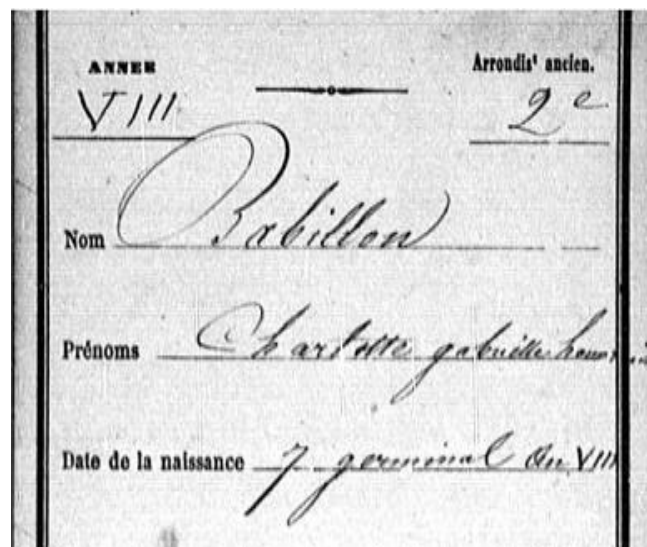 ANNEE
Arrondist ancien.
VIII
2e
Nom Babillon
Prénoms Charlotte gabrielle
Date de la naissance 7 germinal an VIII